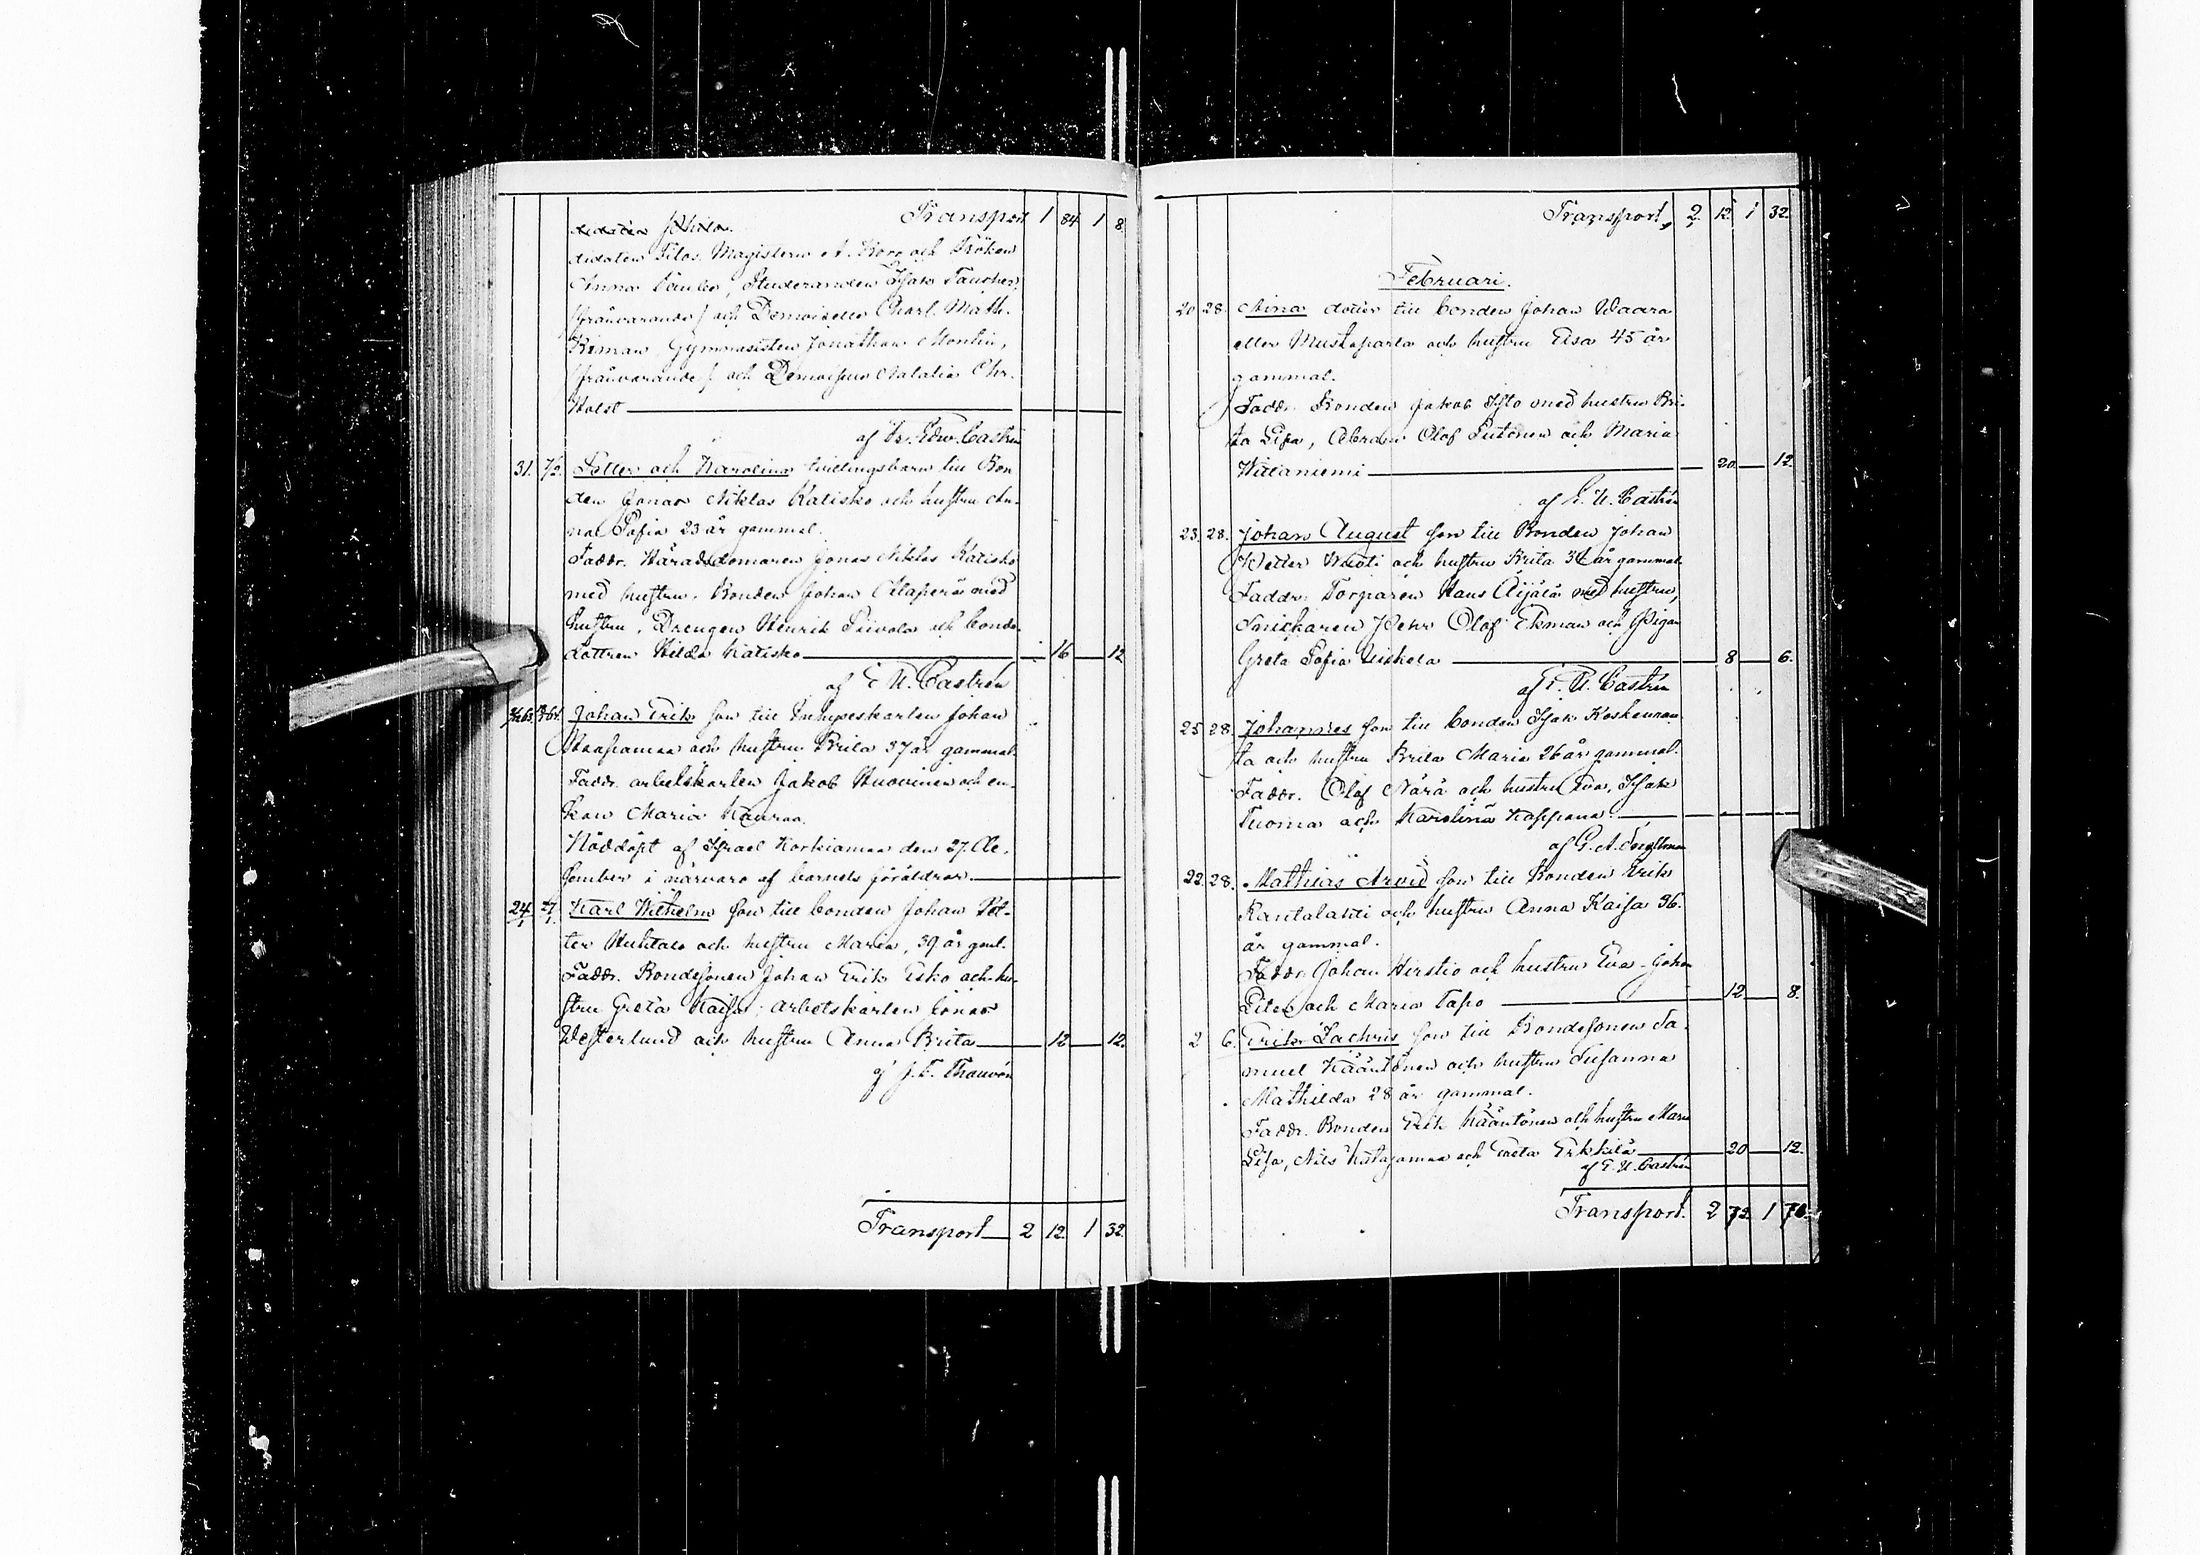 Transport 1 84 1 8.
didaten Filos. Magistern A. Borg och Fröken
Anna , Studeranden Isak Fancher,
/frånvarande/ och Demoiselle Charl. Math.
Kiman, Gymnasisten Jonathan Montin,
/frånvarande/ och Demoiselle Natalia Chr.
Holst
af Fr. Edw. Castrén
31. 7/2. Petter och Karolina tvillingsbarn till Bon-
den Jonas Niklas Katisko och hustru An-
na Sofia 23 år gammal.
Faddr. Häradsdomaren Jonas Niklas Katisko
med hustru. Bonden Johan Alaperä med
hustru, Drengen Henrik Siivola och bonde-
dottren Hilda Katisko 16 12
af E. U. Castrén
Johan Erik son till Inhyseskarlen Johan
och hustru Brita 37 år gammal.
Faddr. arbetskarlen Jakob Huovinen och en-
kan Maria
Nöddöpt af Israel Korkiamaa den 27. De-
sember i närvaro af barnets föräldrar.
24. Karl Wilhelm son till bonden Johan Pet-
ter Huhtala och hustru Maria, 39 år gml.
Faddr. Bondesonen Johan Erik Esko och hu-
stru Greta Kaisa; arbetskarlen Jonas
Westerlund och hustru Anna Brita 12 12.
af J. F. Thauvón
Transport 2 12. 1 32.
Transport 2. 12. 1 32.
Februari.
20 28. Mina dotter till bonden Johan Waara
eller Mustaparta och hustru Elsa 45 år
gammal.
Faddr. Bonden Jakob Ylto med hustru Bri-
ta Lisa, Olof och Maria
Witaniemi 20 12.
af E. U. Castrén
23. 28. Johan August son till Bonden Johan
Petter Huoti och hustru Brita 34 år gammal
Faddr. Torparen Hans Äijälä med hustru,
Snickaren Pehr Olof Ekman och Pigan
Greta Sofia Uiskola 8 6.
af E. U. Castrén
25 28. Johannes son till bonden Isak Koskenran-
ta och hustru Brita Maria 26 år gammal.
Faddr. Olof Närä och hustru Eva, Isak
Tuoma och Karolina
af G. A.
22. 28. Mathias Arvid son till Bonden Erik
Rantalahti och hustru Anna Kaisa 36.
år gammal.
Faddr. Johan Hirstiö och hustru Eva - Johan
och Maria Tapo 12 8.
2 6. Erik Zachris son till Bondesonen Sa-
muel Kääntönen och hustru Susanna
Mathilda 28 år gammal.
Faddr. Bonden Erik Kääntönen och hustru Maria
Lisa, Nils och Erkkilä 20 12.
af E. U. Castrén
Transport. 2 72. 1 70.